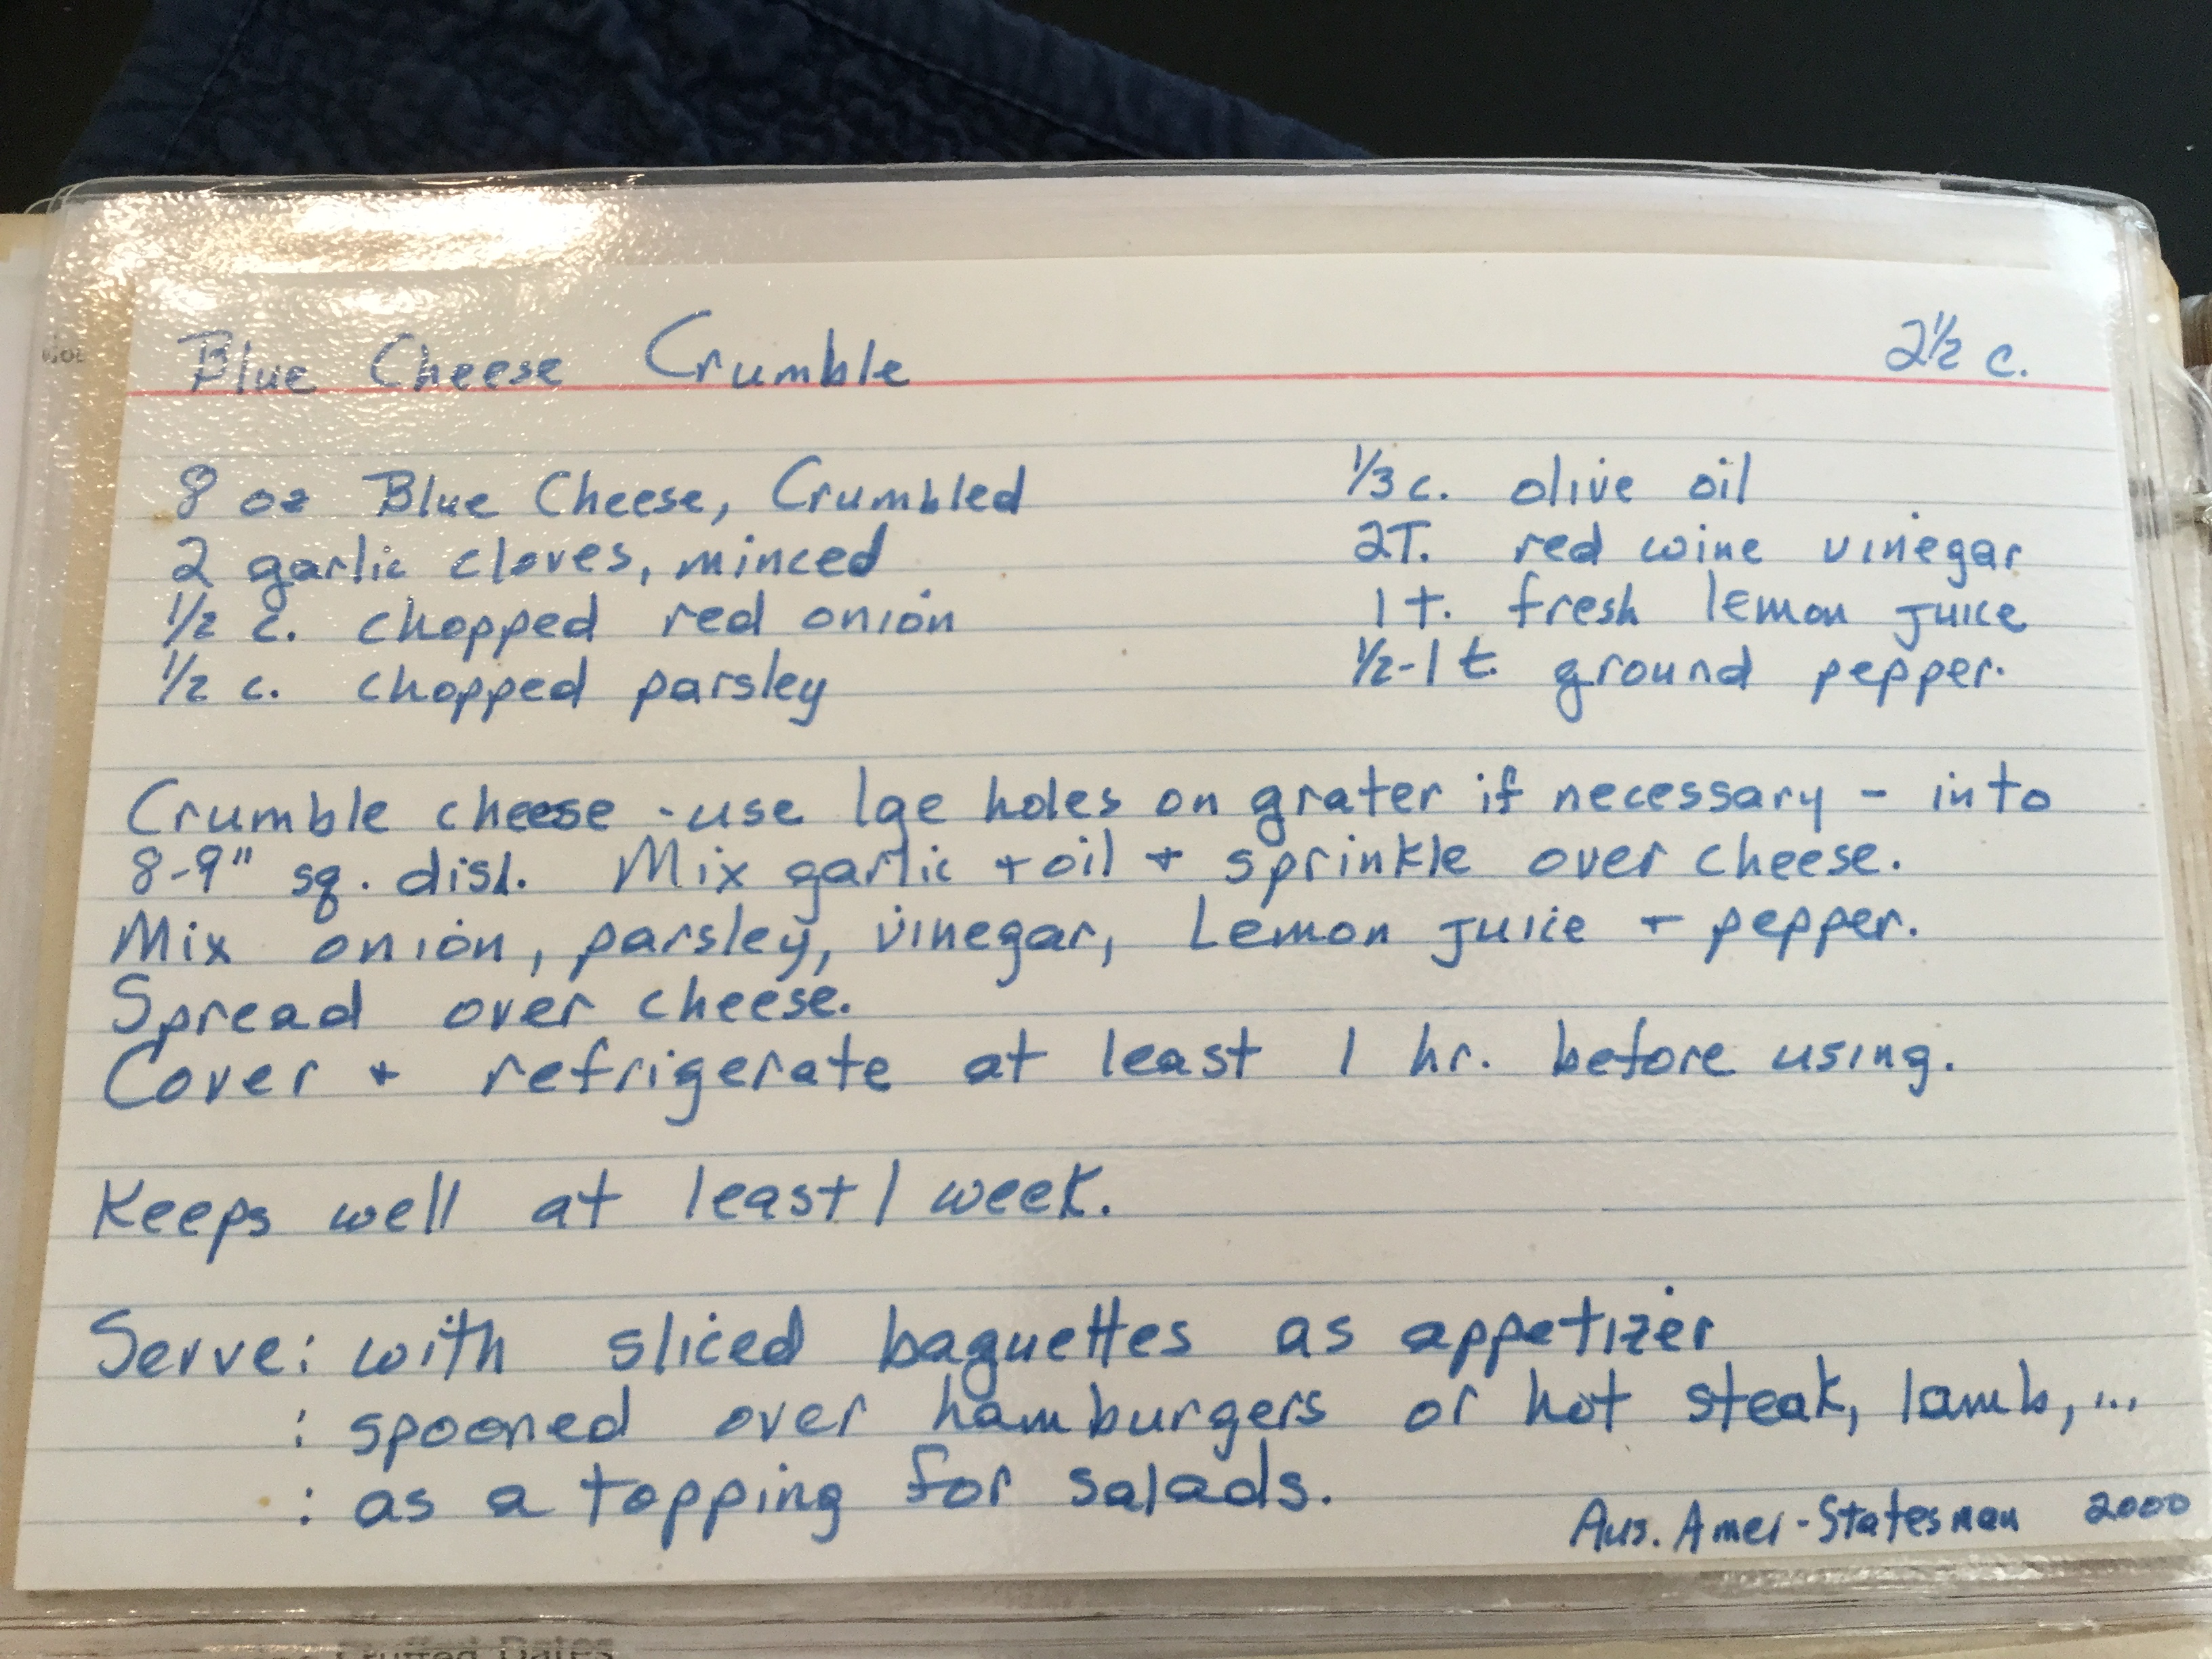 Blue Cheese Crumble 2½ c.
8 oz Blue Cheese, Crumbled
2 garlic cloves, minced
½ c. chopped red onion
½ c. chopped parsley
⅓ c. olive oil
2T. red wine vinegar
1 t. fresh lemon juice
½-1 t. ground pepper.
Crumble cheese - use lge holes on grater if necessary - into
8-9" sq. dish. Mix garlic + oil + sprinkle over cheese.
Mix onion, parsley, vinegar, Lemon juice + pepper.
Spread over cheese.
Cover + refrigerate at least 1 hr. before using.
Keeps well at least 1 week.
Serve: with sliced baguettes as appetizer
: spooned over hamburgers or hot steak, lamb, ...
: as a topping for salads.
Aus. Amer-Statesman 2000
Stuffed Dates